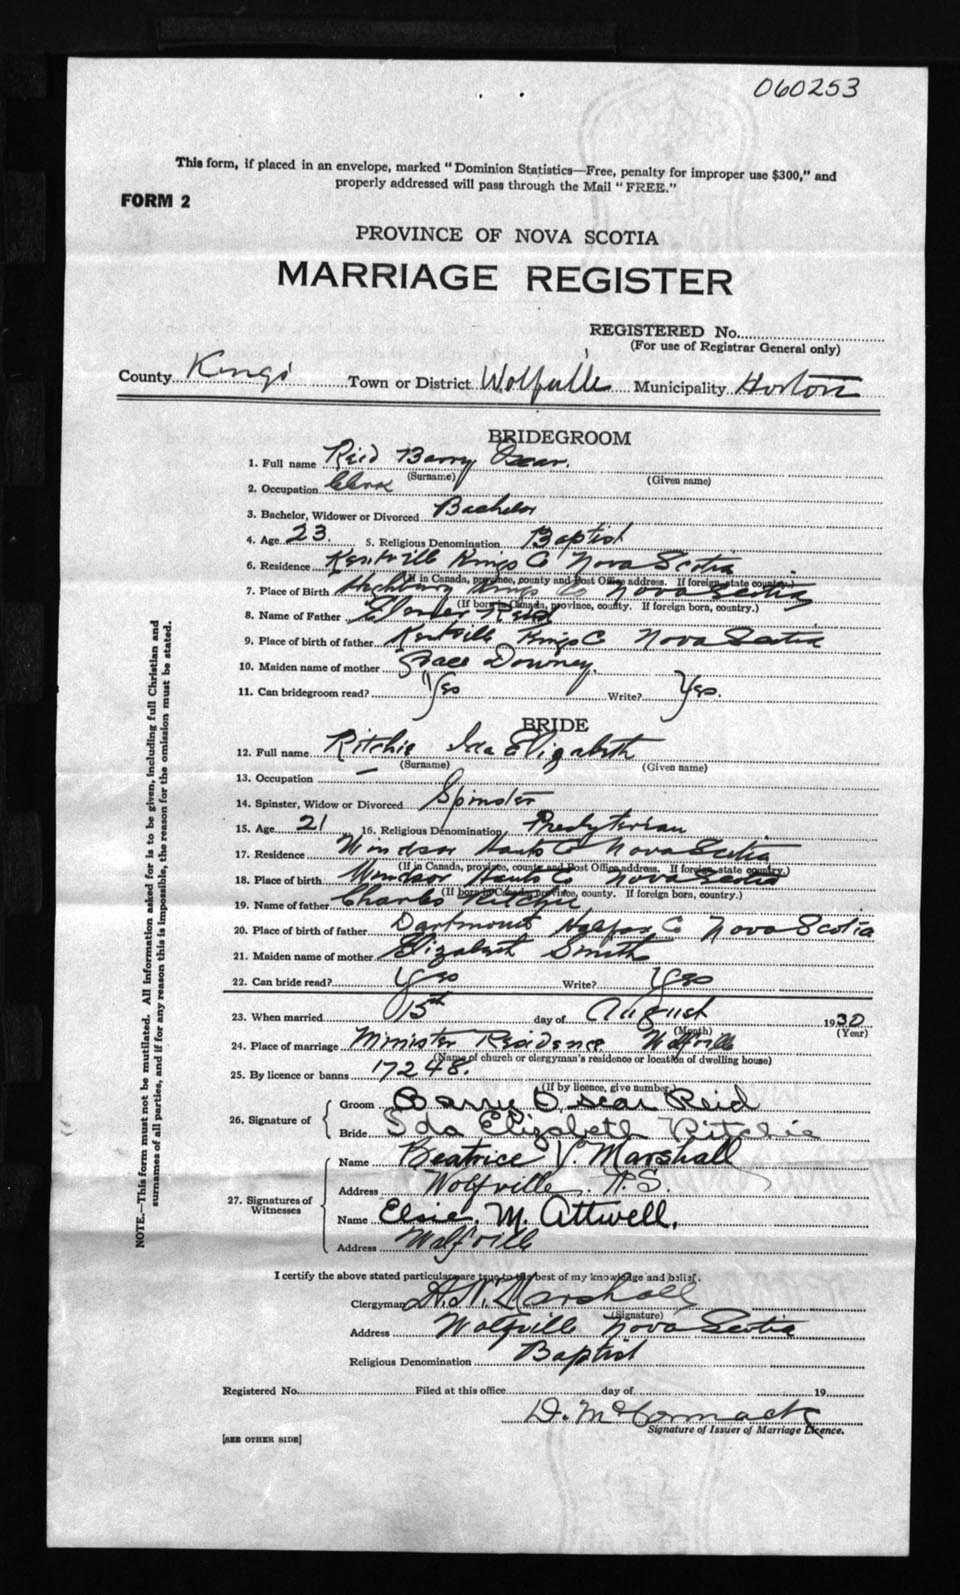 060253
This form, if placed in an envelope, marked "Dominion Statistics—Free, penalty for improper use $300," and
properly addressed will pass through the Mail "FREE."
FORM 2
PROVINCE OF NOVA SCOTIA
MARRIAGE REGISTER
REGISTERED No.
(For use of Registrar General only)
County Kings Town or District Wolfville Municipality Horton
BRIDEGROOM
1. Full name Reid Barry Oscar.
(Surname) (Given name)
2. Occupation Clerk
3. Bachelor, Widower or Divorced Bachelor
4. Age 23. 5. Religious Denomination Baptist
6. Residence Kentville Kings Co Nova Scotia
(If in Canada, province, county and Post Office address. If foreign, state country.)
7. Place of Birth Kings Co Nova Scotia
(If born in Canada, province, county. If foreign born, country.)
8. Name of Father Elmer Reid
9. Place of birth of father Kentville Kings C Nova Scotia
10. Maiden name of mother Grace Downey.
11. Can bridegroom read? Yes Write? Yes.
BRIDE
12. Full name Ritchie Ida Elizabeth
(Surname) (Given name)
13. Occupation —
14. Spinster, Widow or Divorced Spinster
15. Age 21 16. Religious Denomination Presbyterian
17. Residence Windsor Hants Co Nova Scotia
(If in Canada, province, county and Post Office address. If foreign, state country.)
18. Place of birth Windsor Hants Co Nova Scotia
(If born in Canada, province, county. If foreign born, country.)
19. Name of father Charles Ritchie
20. Place of birth of father Dartmouth Halifax Co Nova Scotia
21. Maiden name of mother Elizabeth Smith
22. Can bride read? Yes Write? Yes
23. When married 15th day of August 1930
(Month) (Year)
24. Place of marriage Minister Residence Wolfville
(Name of church or clergyman's residence or location of dwelling house)
25. By licence or banns 17248.
(If by licence, give number)
26. Signature of Groom Barry Oscar Reid
Bride Ida Elizabeth Ritchie
27. Signatures of Witnesses Name Beatrice V. Marshall
Address Wolfville, N.S.
Name Elsie. M. Attwell.
Address Wolfville
I certify the above stated particulars are true to the best of my knowledge and belief.
Clergyman H.N. Marshall
(Signature)
Address Wolfville Nova Scotia
Religious Denomination Baptist
Registered No. Filed at this office day of 19
D. McCormack
Signature of Issuer of Marriage Licence.
[SEE OTHER SIDE]
NOTE.—This form must not be mutilated. All information asked for is to be given, including full Christian and
surnames of all parties, and if for any reason this is impossible, the reason for the omission must be stated.